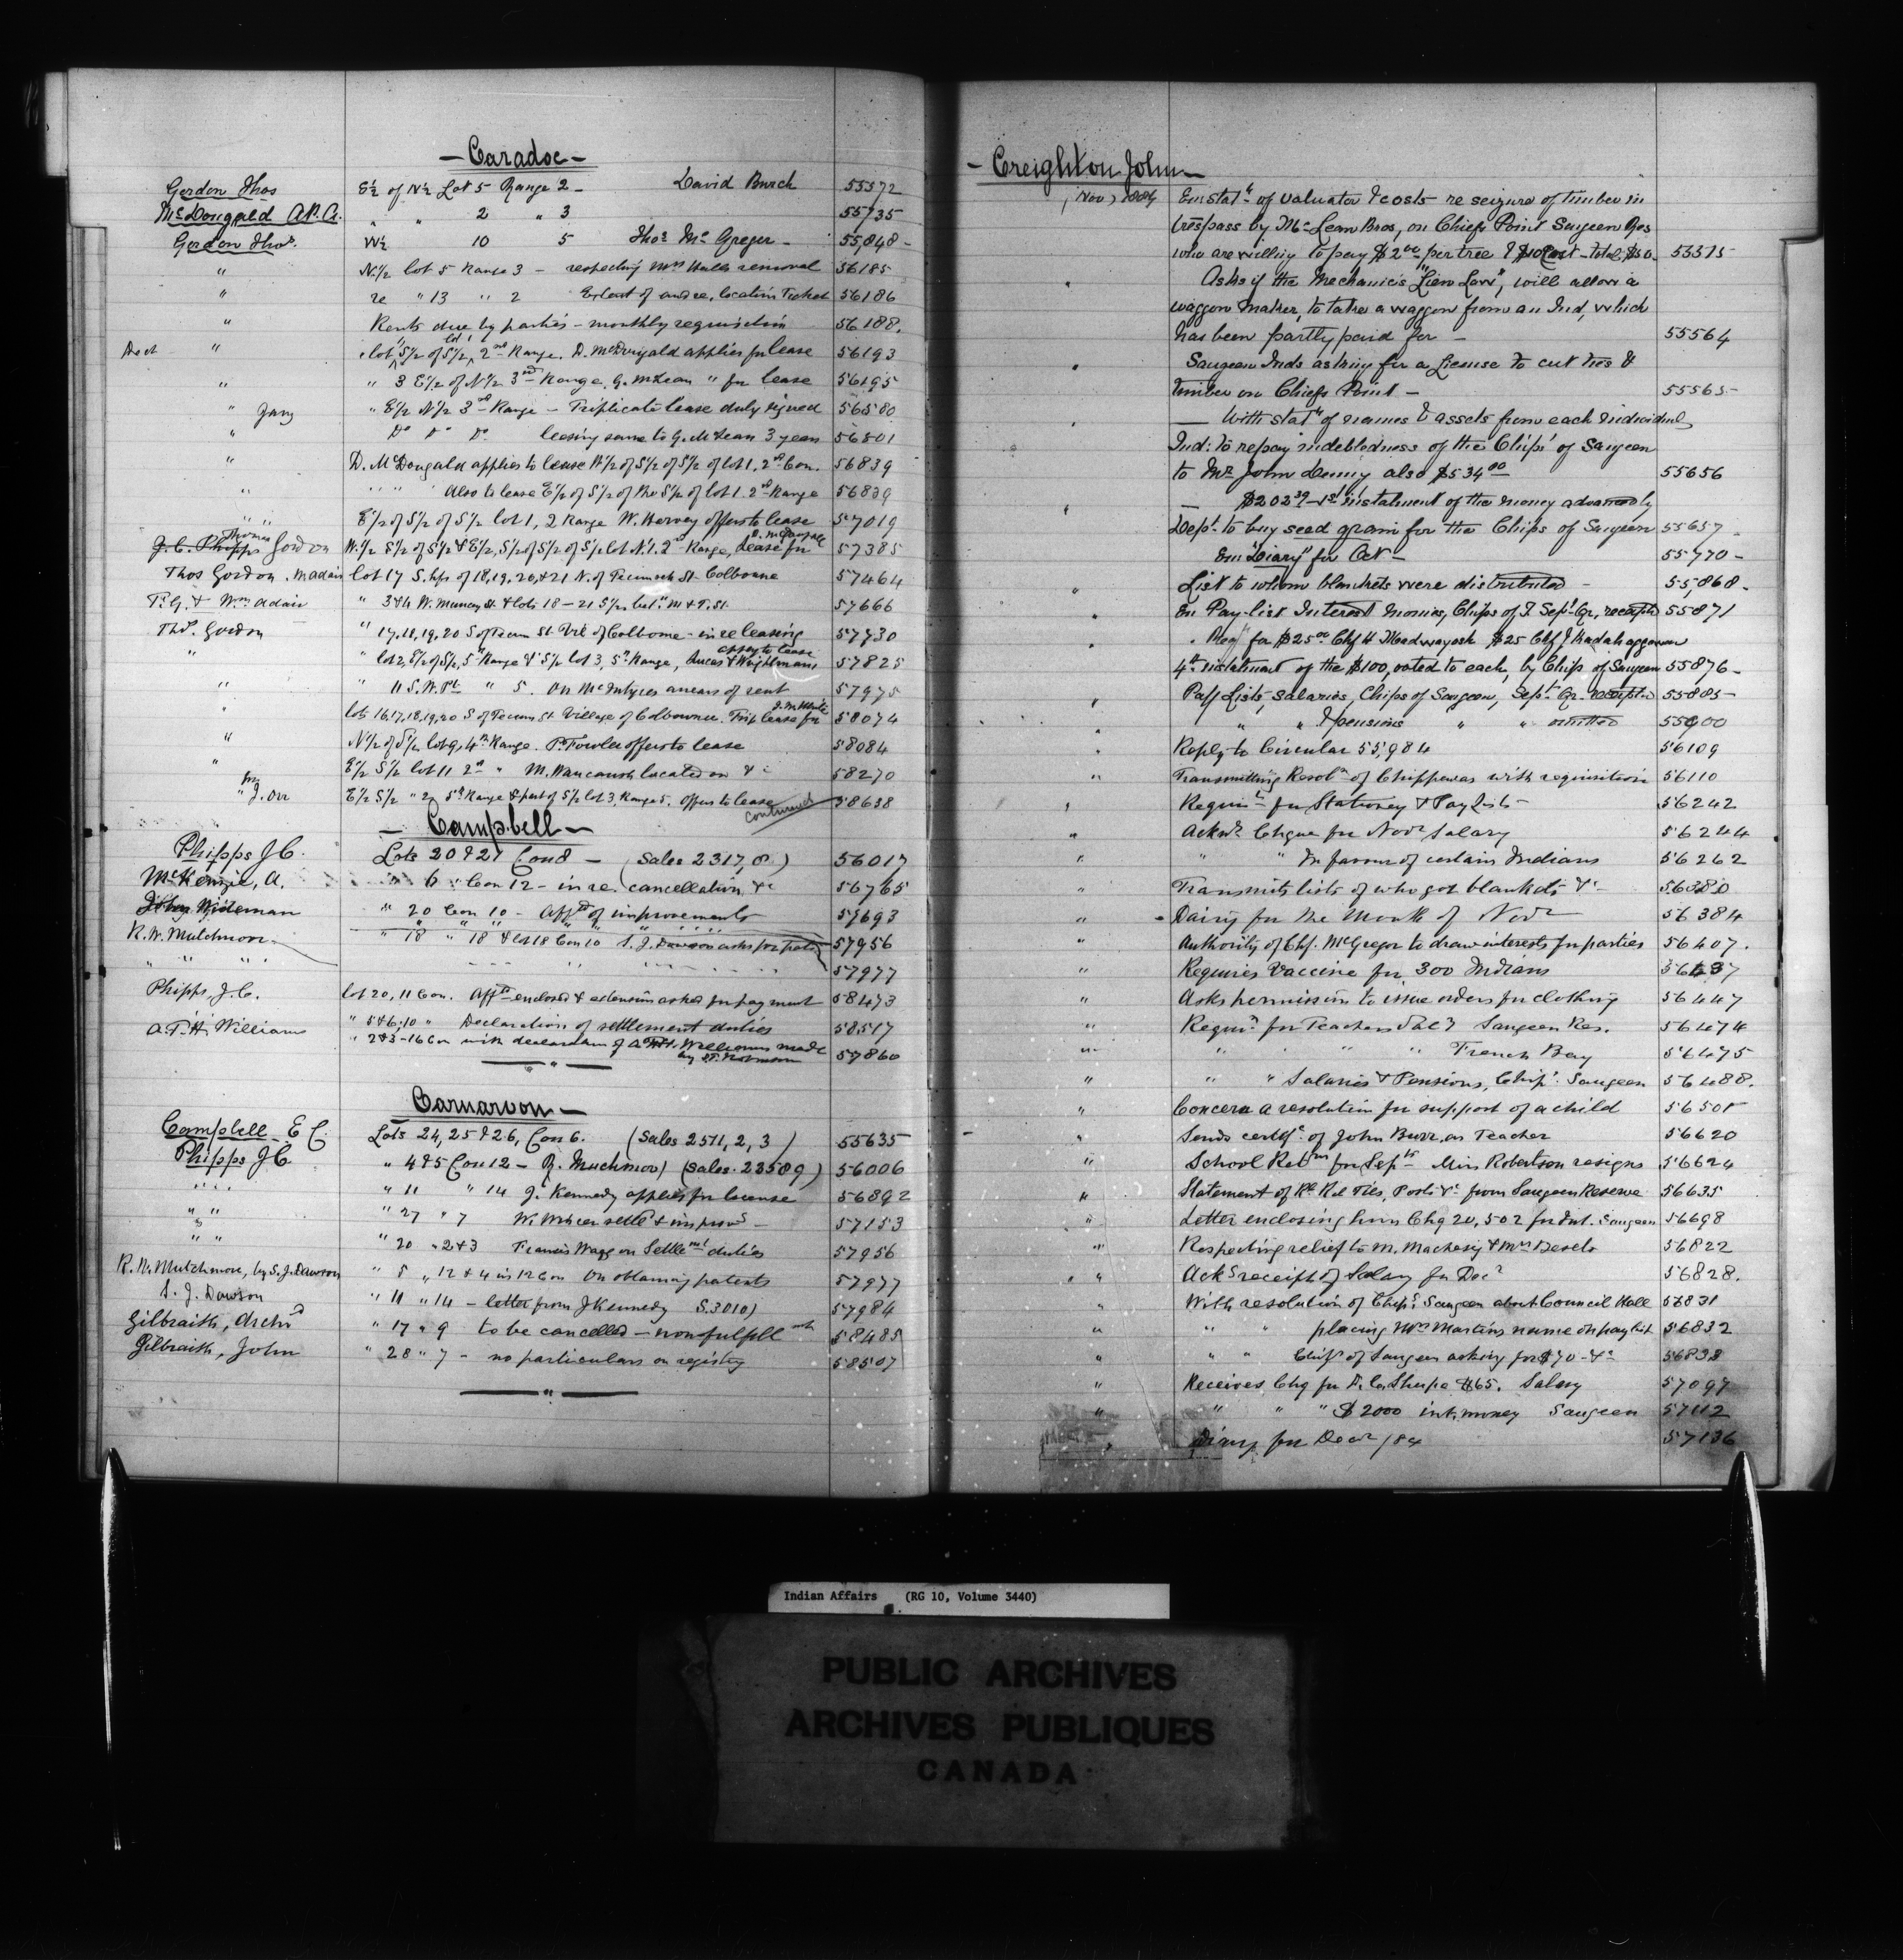 - Caradoc -
Gordon Thos E½ of N½ Lot 5 Range 2 - David Burch 55572
McDougald A.P.A. " " 2 " 3 55735
Gordon Thos. W½ 10 5 Thos McGregor - 55,848 -
" N.½ lot 5 Range 3 - respecting Mrs Halls removal 56185
" re " 13 " 2 Extent of and re, location Ticket 56186
" Rents due by parties - monthly requisition 56188.
Dect " lot 1 S½ of S½, 2nd Range. D. McDougald applies for lease 56193
" " 3 E½ of N½ 3rd Range, G. McLean " for lease 56195
" Jany " E½ N½ 3rd Range - Triplicate lease duly signed 56580
" Do Do Do leasing same to G. McLean 3 years 56501
" D. McDougald applies to lease W½ of S½ of S½ of lot 1, 2nd Con. 56839
" " " Also to lease E½ of S½ of the S½ of lot 1. 2nd Range 56839
" " E½ of S½ of S½ lot 1, 2 Range W. Hervey offers to lease 57019
J. C. Phipps Thomas Gordon W.½ S½ of S½ & E½, S½ of S½ of S½ lot N. 1. 2nd Range, Lease for D. McDougald 57385
Thos Gordon . Madair lot 17 S. hfs of 18, 19, 20, & 21 N. of Tecumseh St. Colborne 57464
T. G. & Wm Adair " 3 & 4 W. Muncey St. & lots 18 - 21 S½ bet. M & T. St. 57666
Thos. Gordon " 17, 18, 19, 20 S of Tecum St. Vil of Colborne - in re leasing 57730
" " lot 2, E½ of S½, 5th Range & S½ lot 3, 5th Range, Lucas & Wrightman apply to lease 57825
" " 11 S.W. Pt " 5. On McIntyres arrears of rent 57975
" lots 16, 17, 18, 19, 20 S of Tecum St. Village of Colbourne. Trip lease for J. McWhite 58074
" N½ of S½ lot 9, 4th Range. P. Fowler offers to lease 58084
" E½ S½ lot 11 2nd " M. located on &c 58270
" J. Orr E½ S½ " 2, 5th Range & part of S½ lot 3, Range 5. offers to lease 58638
continued
- Campbell -
Phipps J C. Lots 20 & 21 Con 8 - (Sales 2317, 8.) 56017
McKenzie, A. " 6 " Con 12 - in re. cancellation, &c 56765
John Wideman " 20 Con 10 - Affdt of improvements 57693
R. W. Mutchmor " 18 " 18 & lot 18 Con 10 S. J. Dawson asks for patent 57956
" " " " 57977
Phipps, J. C. lot 20, 11 Con. Affdt enclosed & extension asked for payment 58473
A. T. H. Williams " 5 & 6, 10 " Declaration of settlement duties 58517
" 2 & 3 - 16 Con with declaration of A. T. H. Williams made by T. Robinson 57860
Carnarvon -
Campbell E C. Lots 24, 25 & 26, Con 6. (Sales 2511, 2, 3) 55635
Phipps J C " 4 & 5 Con 12 - R. Muchmor) (Sales. 23589) 56006
" " " 11 " 14 J. Kennedy applies for license 56892
" " " 27 " 7 W. settlt & improvs - 57153
" " " 20 " 2 & 3 Francis Wagg on Settlemt duties 57956
R. W. Mutchmor, by S. J. Dawson " 5 " 12 & 4 in 12 Con On obtaining patents 57977
S. J. Dawson " 11 " 14 - letter from J Kennedy S. 3010) 57984
Gilbraith, Archd " 17 " 9 to be cancelled - non fulfillmt 58485
Gilbraith, John " 28 " 7 - no particulars on registry 58507
- Creighton John -
Nov, 1884 Em statt of valuator & costs re seizure of timber in
trespass by McLean Bros, on Chiefs Point Saugeen Res
who are willing to pay $2.00 per tree & $10 Cost - total $50. 55515
" Asks if the Mechanic's "Lien Law", will allow a
waggon maker, to take a waggon from an Ind, which
has been partly paid for - 55564
" Saugeen Inds asking for a License to cut ties &
timber on Chiefs Point - 55565 -
" With statt of names & assets from each individual
Ind: to repay indebtedness of the Chips' of Saugeen
to Mr John Denny also $534.00 55656
" $202.39 - 1st instalment of the money advanced by
Dept. to buy seed grain for the Chips of Saugeen 55657 -
Em "Diary" for Oct - 55770 -
" List to whom blankets were distributed - 55,868 -
" En Pay-list Interest monies, Chips of S Sept Qr, receipted 55871
" Reqn for $25.00 Chf H Madwayosh $25 Chf J Kadahgegwon
4th instalment of the $100, voted to each, by Chips of Saugeen 55876 -
" Pay Lists, Salaries, Chips of Saugeen, Sept. Qr. receipted 55885 -
" " " Pensions " " omitted 55900
" Reply to Circular 55,984 56109
" Transmitting Resoln of Chippewas with requisition 56110
" Requisn for Stationey & Pay Lists - 56242
" Acknd Cheque for Novr Salary 56244
" " " In favour of certain Indians 56262
" Transmits lists of who got blankets &c - 56380
" - Dairy for the Month of Novr 56384
" Authority of Chf. McGregor to draw interests for parties 56407.
" Requires Vaccine for 300 Indians 56437
" Asks permission to issue orders for clothing 56447
" Requisn for Teachers Saly Saugeen Res. 56474
" " " " French Bay 56475
" " " Salaries & Pensions, Chips. Saugeen 56488.
" Concern a resolution for support of a child 56501
" Sends certifc. of John Burr, as Teacher 56620
" School Retns for Septr Miss Robertson resigns 56624
" Statement of R. Rd Ties, Posts &c from Saugeen Reserve 56635
" Letter enclosing him Chq 20,502 for Int. Saugeen 56698
" Respecting relief to M. Machesig & Mrs 56822
" Acks receipt of Salary for Decr 56828.
" With resolution of Chips. Saugeen about Council Hall 56831
" " " placing Mrs Martins name on pay list 56832
" " " Chips of Saugeen asking for $70 - &c 56833
" Receives Chq for D. Sharpe $65. Salary 57097
" " " " $2000 int. money Saugeen 57112
" Diary for Decr /84 57136
Indian Affairs (RG 10, Volume 3440)
PUBLIC ARCHIVES
ARCHIVES PUBLIQUES
CANADA